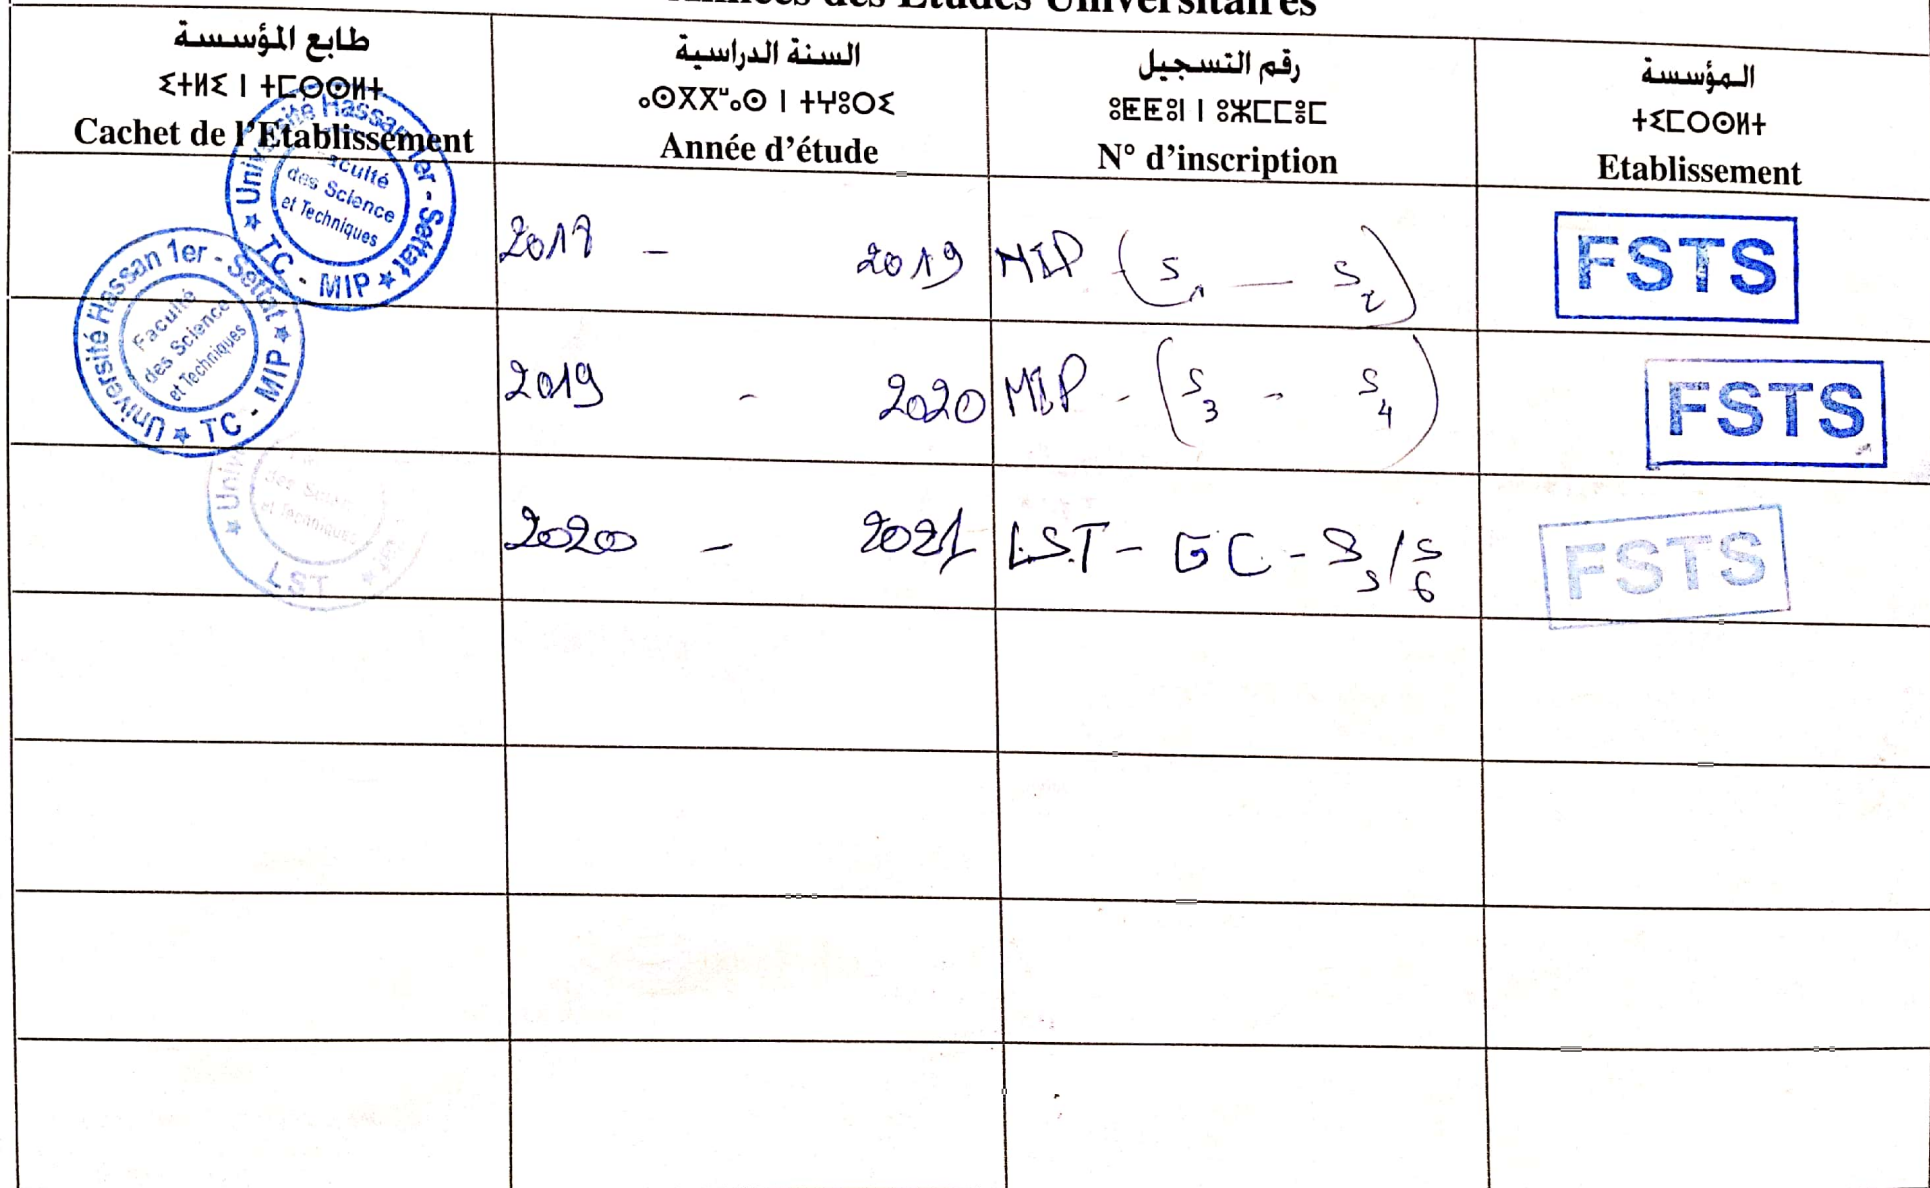 Années des Etudes Universitaires
طابع المؤسسة
ⵉⵜⵍⵉ ⵏ ⵜⵎⵙⵙⵍⵜ
Cachet de l'Etablissement
السنة الدراسية
ⴰⵙⴳⴳⵯⴰⵙ ⵏ ⵜⵖⵓⵔⵉ
Année d'étude
رقم التسجيل
ⵓⵟⵟⵓⵏ ⵏ ⵓⵣⵎⵎⴻⵎ
N° d'inscription
المؤسسة
ⵜⵉⵎⵔⵙⵍⵜ
Etablissement
Université Hassan 1er - Settat
Faculté
des Science
et Techniques
TC - MIP
2018 - 2019
MIP (S1 — S2)
FSTS
Université Hassan 1er - Settat
Faculté
des Science
et Techniques
TC - MIP
2019 - 2020
MIP - (S3 - S4)
FSTS
des
et Techniques
LST
2020 - 2021
LST - GC - S5/S6
FSTS